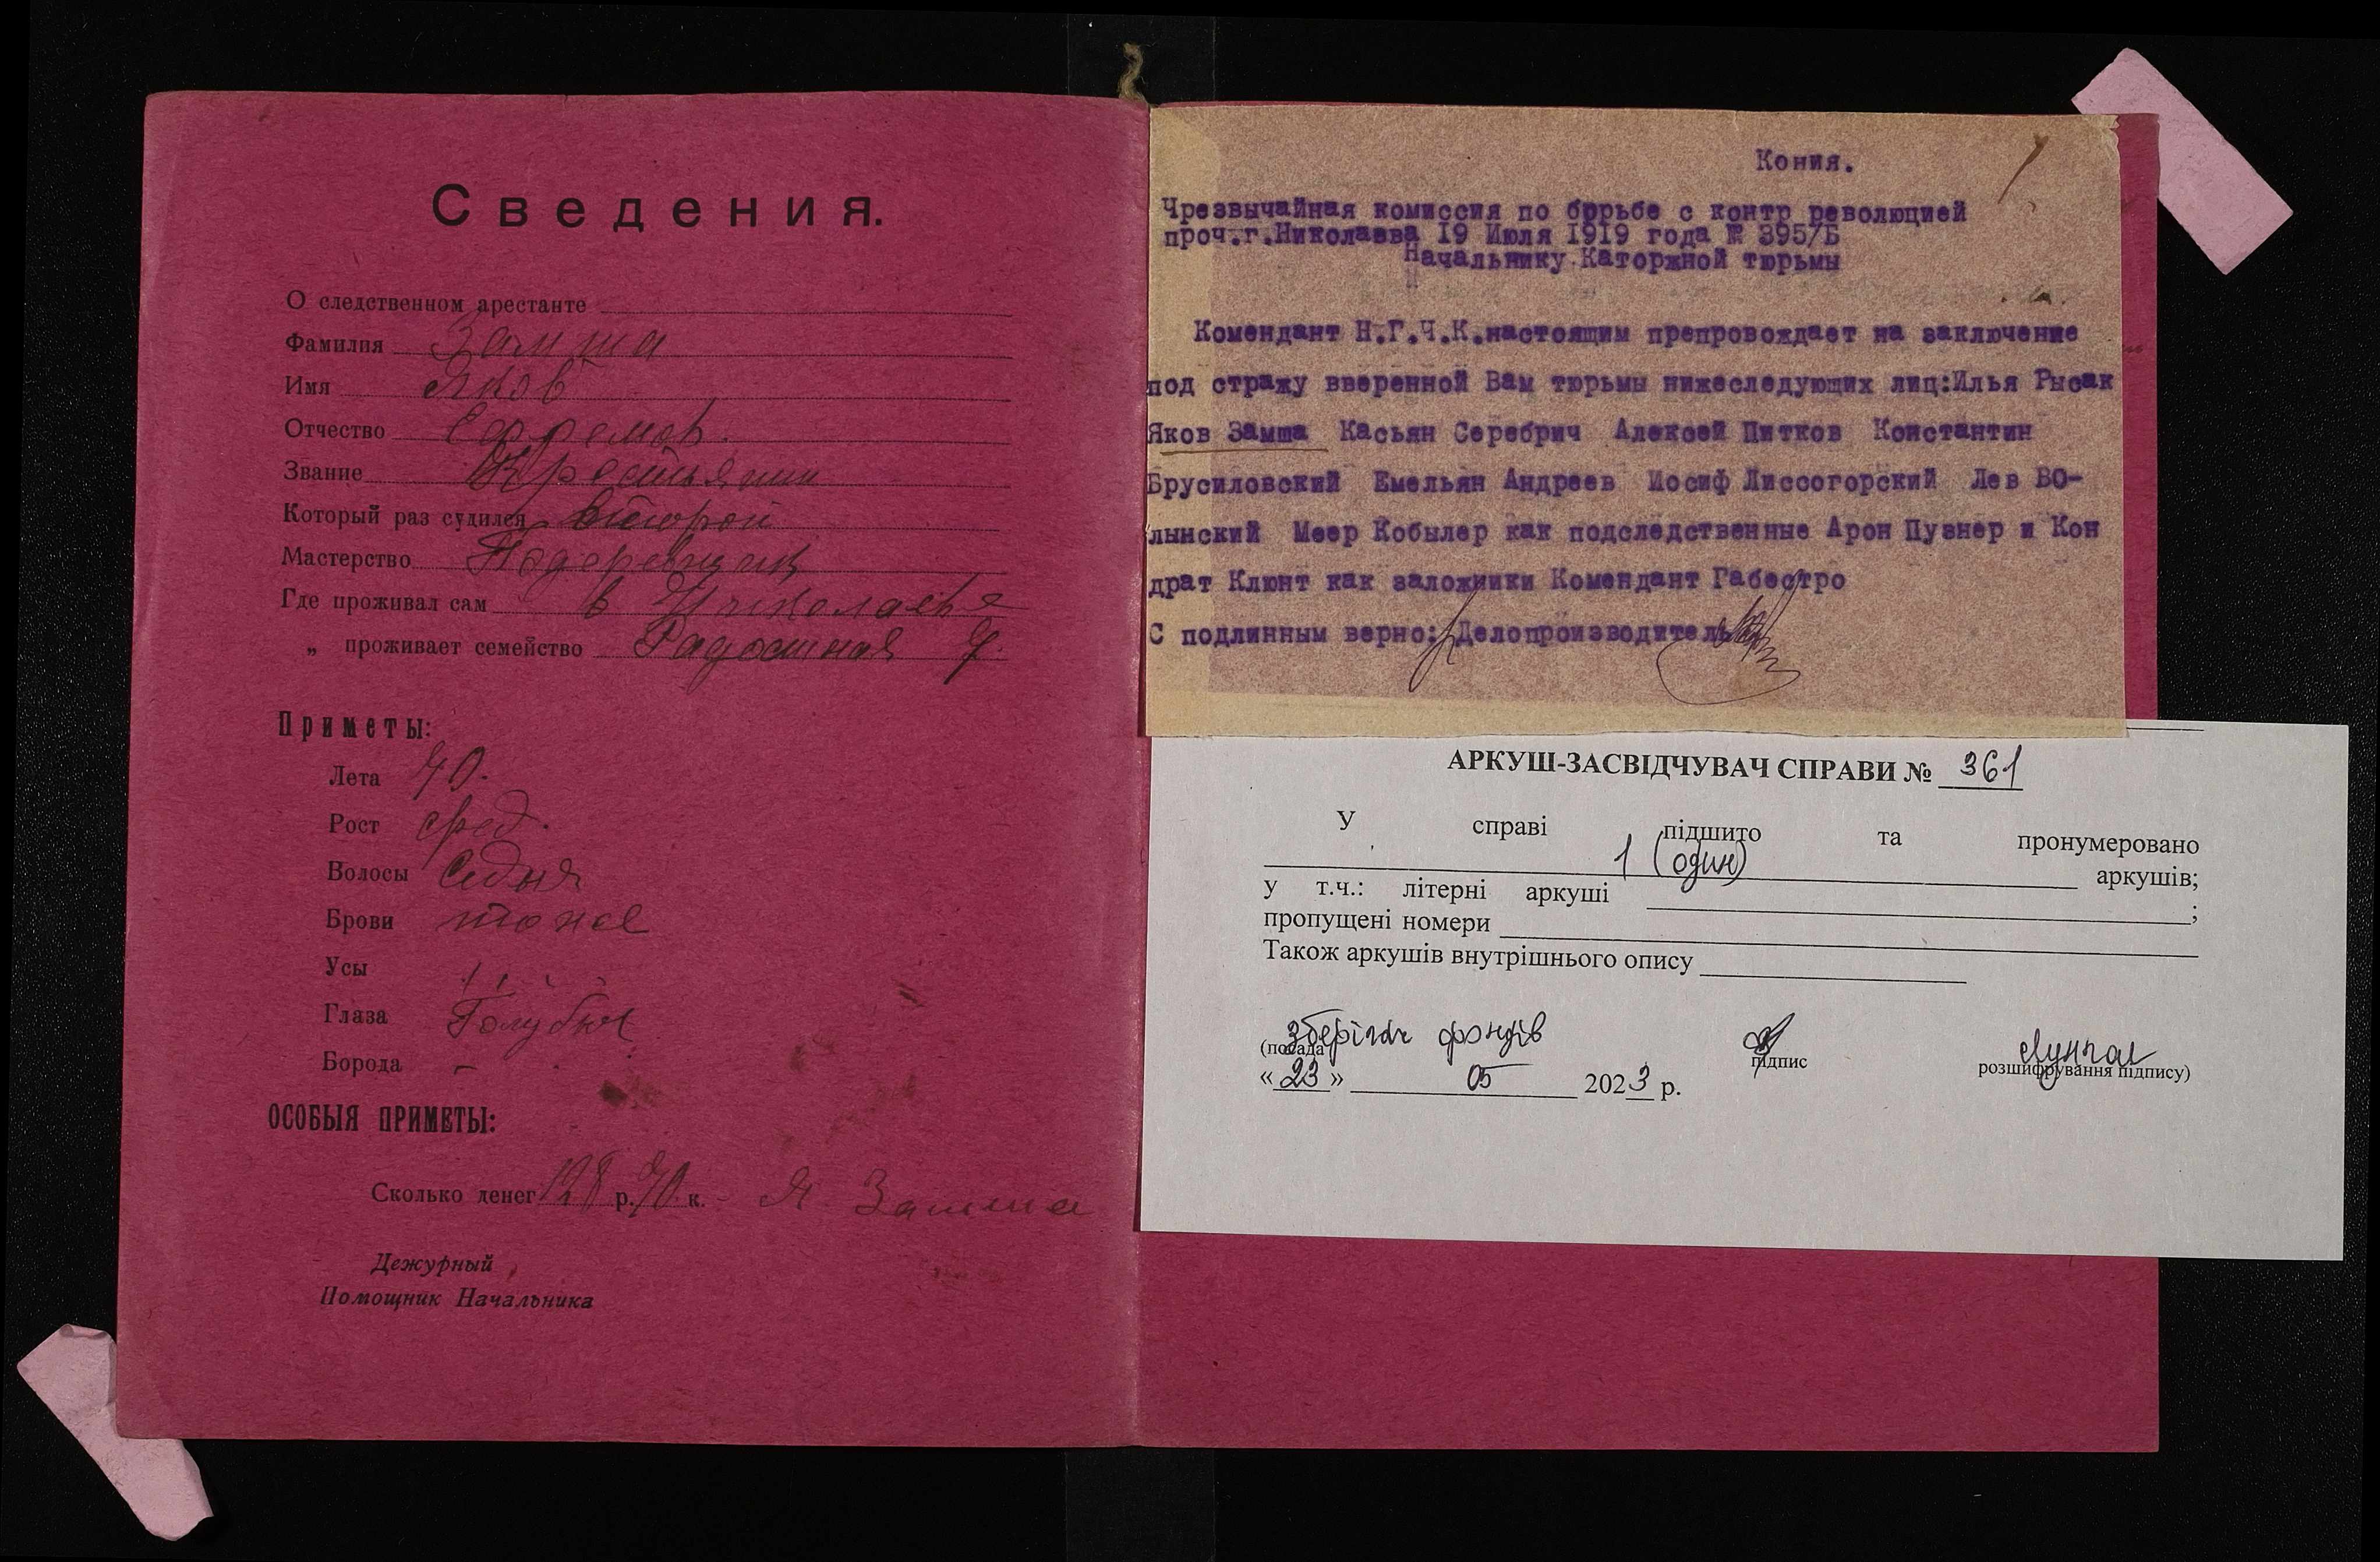 Сведения.
О следственном арестанте
Фамилия Замша
Имя Яков
Отчество Ефремов.
Звание Крестьянин
Который раз судился второй
Мастерство
Где проживал сам в Николаеве
„ проживает семейство
Приметы:
Лета 40.
Рост сред.
Волосы Седыя
Брови тоже
Усы
Глаза Голубые
Борода –
ОСОБЫЯ ПРИМЕТЫ:
Сколько денег 128 р. 40 к. – Я. Замша
Дежурный
Помощник Начальника
Кония.
Чрезвычайная комиссия по борьбе с контр революцией
проч.г.Николаева 19 Июля 1919 года № 395/Б
Начальнику Каторжной тюрьмы
Комендант Н.Г.Ч.К.настоящим препровождает на заключение
под стражу вверенной Вам тюрьмы нижеследующих лиц:Илья Рысак
Яков Замша Касьян Серебрич Алексей Питков Константин
Брусиловский Емельян Андреев Иосиф Лиссогорский Лев ВО-
лынский Меер Кобылер как подследственные Арон Пувнер и Кон
драт Клюнт как заложники Комендант Габестро
С подлинным верно: Делопроизводитель
АРКУШ-ЗАСВІДЧУВАЧ СПРАВИ № 361
У справі підшито та пронумеровано
1 (один) аркушів;
у т.ч.: літерні аркуші ;
пропущені номери
Також аркушів внутрішнього опису
зберігач фондів
(посада) підпис розшифрування підпису)
« 23 » 05 2023 р.